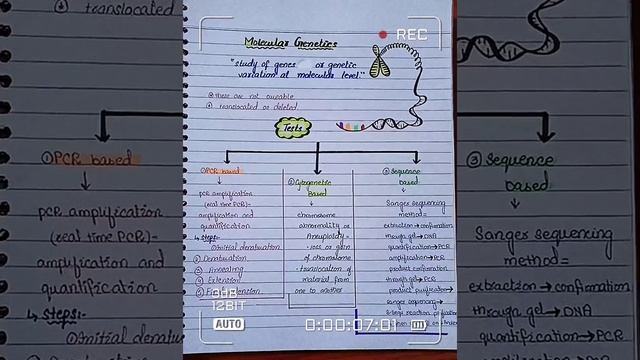 REC
Molecular Genetics
"study of genes or genetic
variation at molecular level"
these are not curable
translocated or deleted
Tests
① PCR based
PCR amplification
(real time PCR)=
amplification and
quantification
↳ steps:-
① Initial denaturation
② Denaturation
③ Annealing
④ Extension
② Cytogenetic
based
chromosome
abnormality or
Aneuploidy=
loss or gain
of chromosome
translocation of
material from
one to another
③ Sequence
based
Sanger sequencing
method=
extraction→confirmation
through gel→DNA
quantification→PCR
amplification→PCR
product confirmation
through gel→PCR
product purification→
sanger sequencing→
12BIT
AUTO
0:00:07:01
translocated
① PCR based
PCR amplification
(real time PCR)=
amplification and
quantification
↳ steps:-
① Initial denatu
③ Sequence
based
Sanger sequencing
method=
extraction→confirmation
through gel→DNA
quantification→PCR